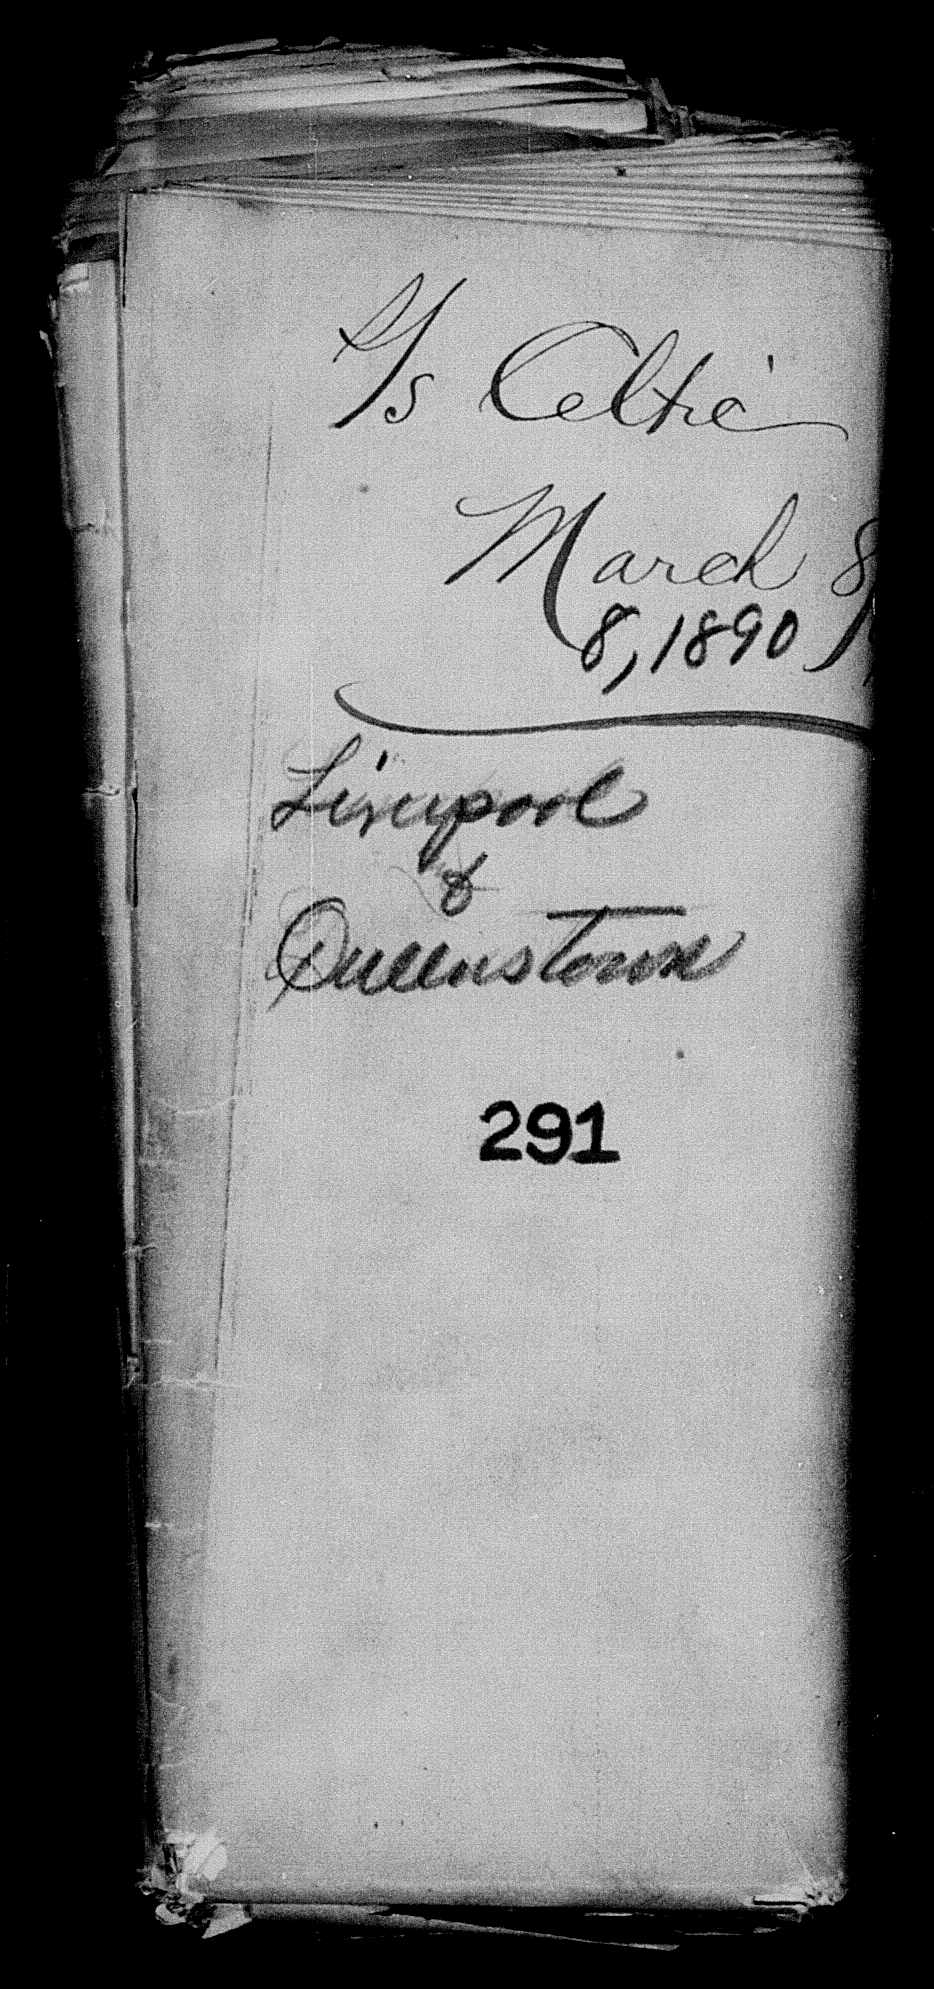 S/s Celtic
March 8/
8, 1890
Liverpool
&
Queenstown
291